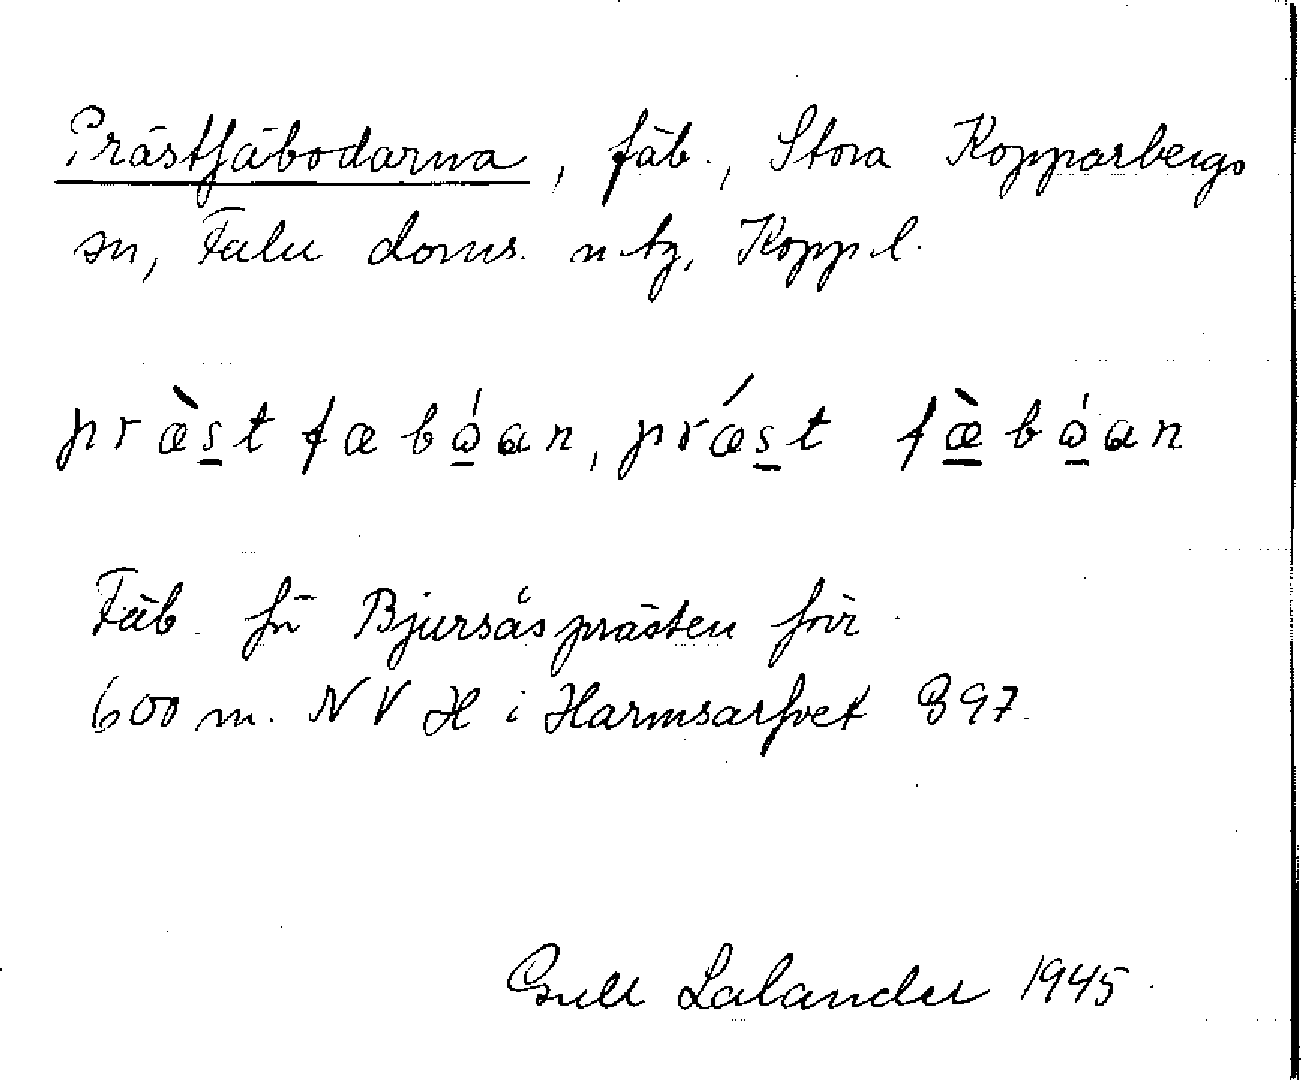 Prästfäbodarna, fäb., Stora Kopparbergs
sn, Falu doms. n tg, Kopp l.
præ̀s̲t fæbo̲̍an, prǽs̲t fæ̲̀bo̲̍an
Fäb. för Bjursåsprästen förr
600 m. NV H i Harmsarfvet 897.
Gull Lalander 1945.